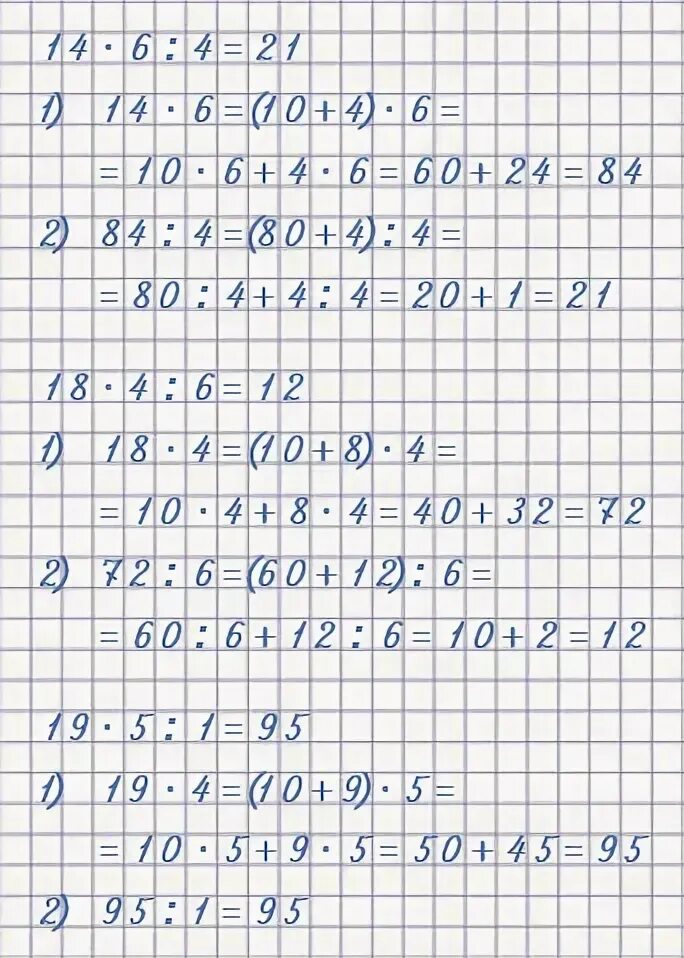 14 · 6 : 4 = 21
1) 14 · 6 = (10 + 4) · 6 =
= 10 · 6 + 4 · 6 = 60 + 24 = 84
2) 84 : 4 = (80 + 4) : 4 =
= 80 : 4 + 4 : 4 = 20 + 1 = 21
18 · 4 : 6 = 12
1) 18 · 4 = (10 + 8) · 4 =
= 10 · 4 + 8 · 4 = 40 + 32 = 72
2) 72 : 6 = (60 + 12) : 6 =
= 60 : 6 + 12 : 6 = 10 + 2 = 12
19 · 5 : 1 = 95
1) 19 · 4 = (10 + 9) · 5 =
= 10 · 5 + 9 · 5 = 50 + 45 = 95
2) 95 : 1 = 95